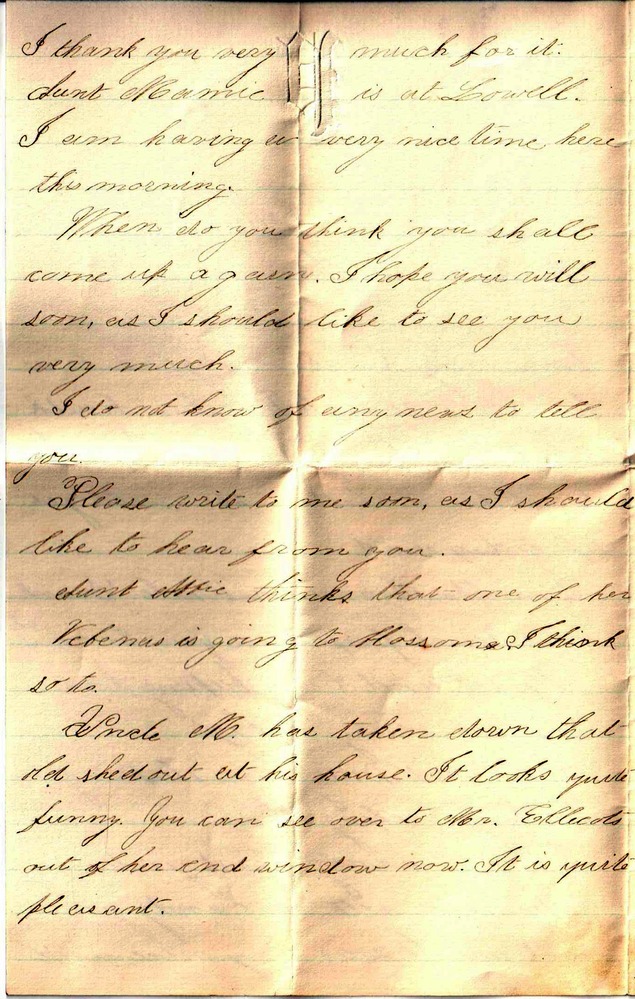 I thank you very much for it.
Aunt Mamie is at Lowell.
I am having a very nice time here
this morning.
When do you think you shall
come up again. I hope you will
soon, as I should like to see you
very much.
I do not know of any news to tell
you.
Please write to me soon, as I should
like to hear from you.
Aunt Attie thinks that one of her
Vebenas is going to blossom. I think
so to.
Uncle M. has taken down that
old shed out at his house. It looks quite
funny. You can see over to Mr. Ellicots
out of her end window now. It is quite
pleasant.